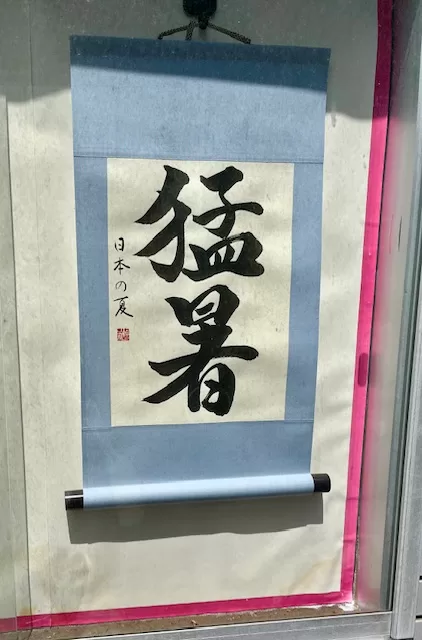 猛暑
日本の夏